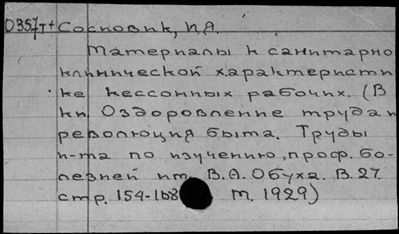 0357т+ Сосновик, И.Я.
Материалы к санитарно
клинической характеристи
ке кессонных рабочих. (В
кн. Оздоровление труда и
революция быта. Труды
и-та по изучению, проф. бо-
лезней им. В.А. Обуха. В. 27.
стр. 154-168 М. 1929)